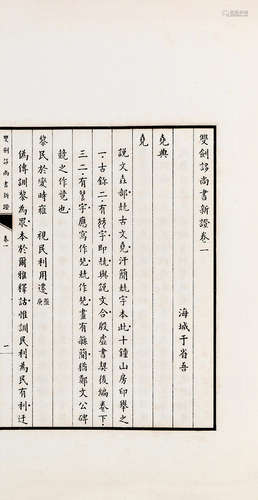 雙劍誃尚書新證卷一
海城于省吾
堯典
堯
說文垚部
古文堯汗簡
字本此十鐘山房印舉之
一古鉩二有
字即
與說文合殷虛書契後編卷下
三二有
字應寫作
畫有緐簡猶鄭文公碑
競之作
也
黎民於變時雍 視民利用遷
盤庚
偽傳訓黎為眾本於爾雅釋詁惟訓民利為民有利遷
雙劍誃尚書新證
卷一
一